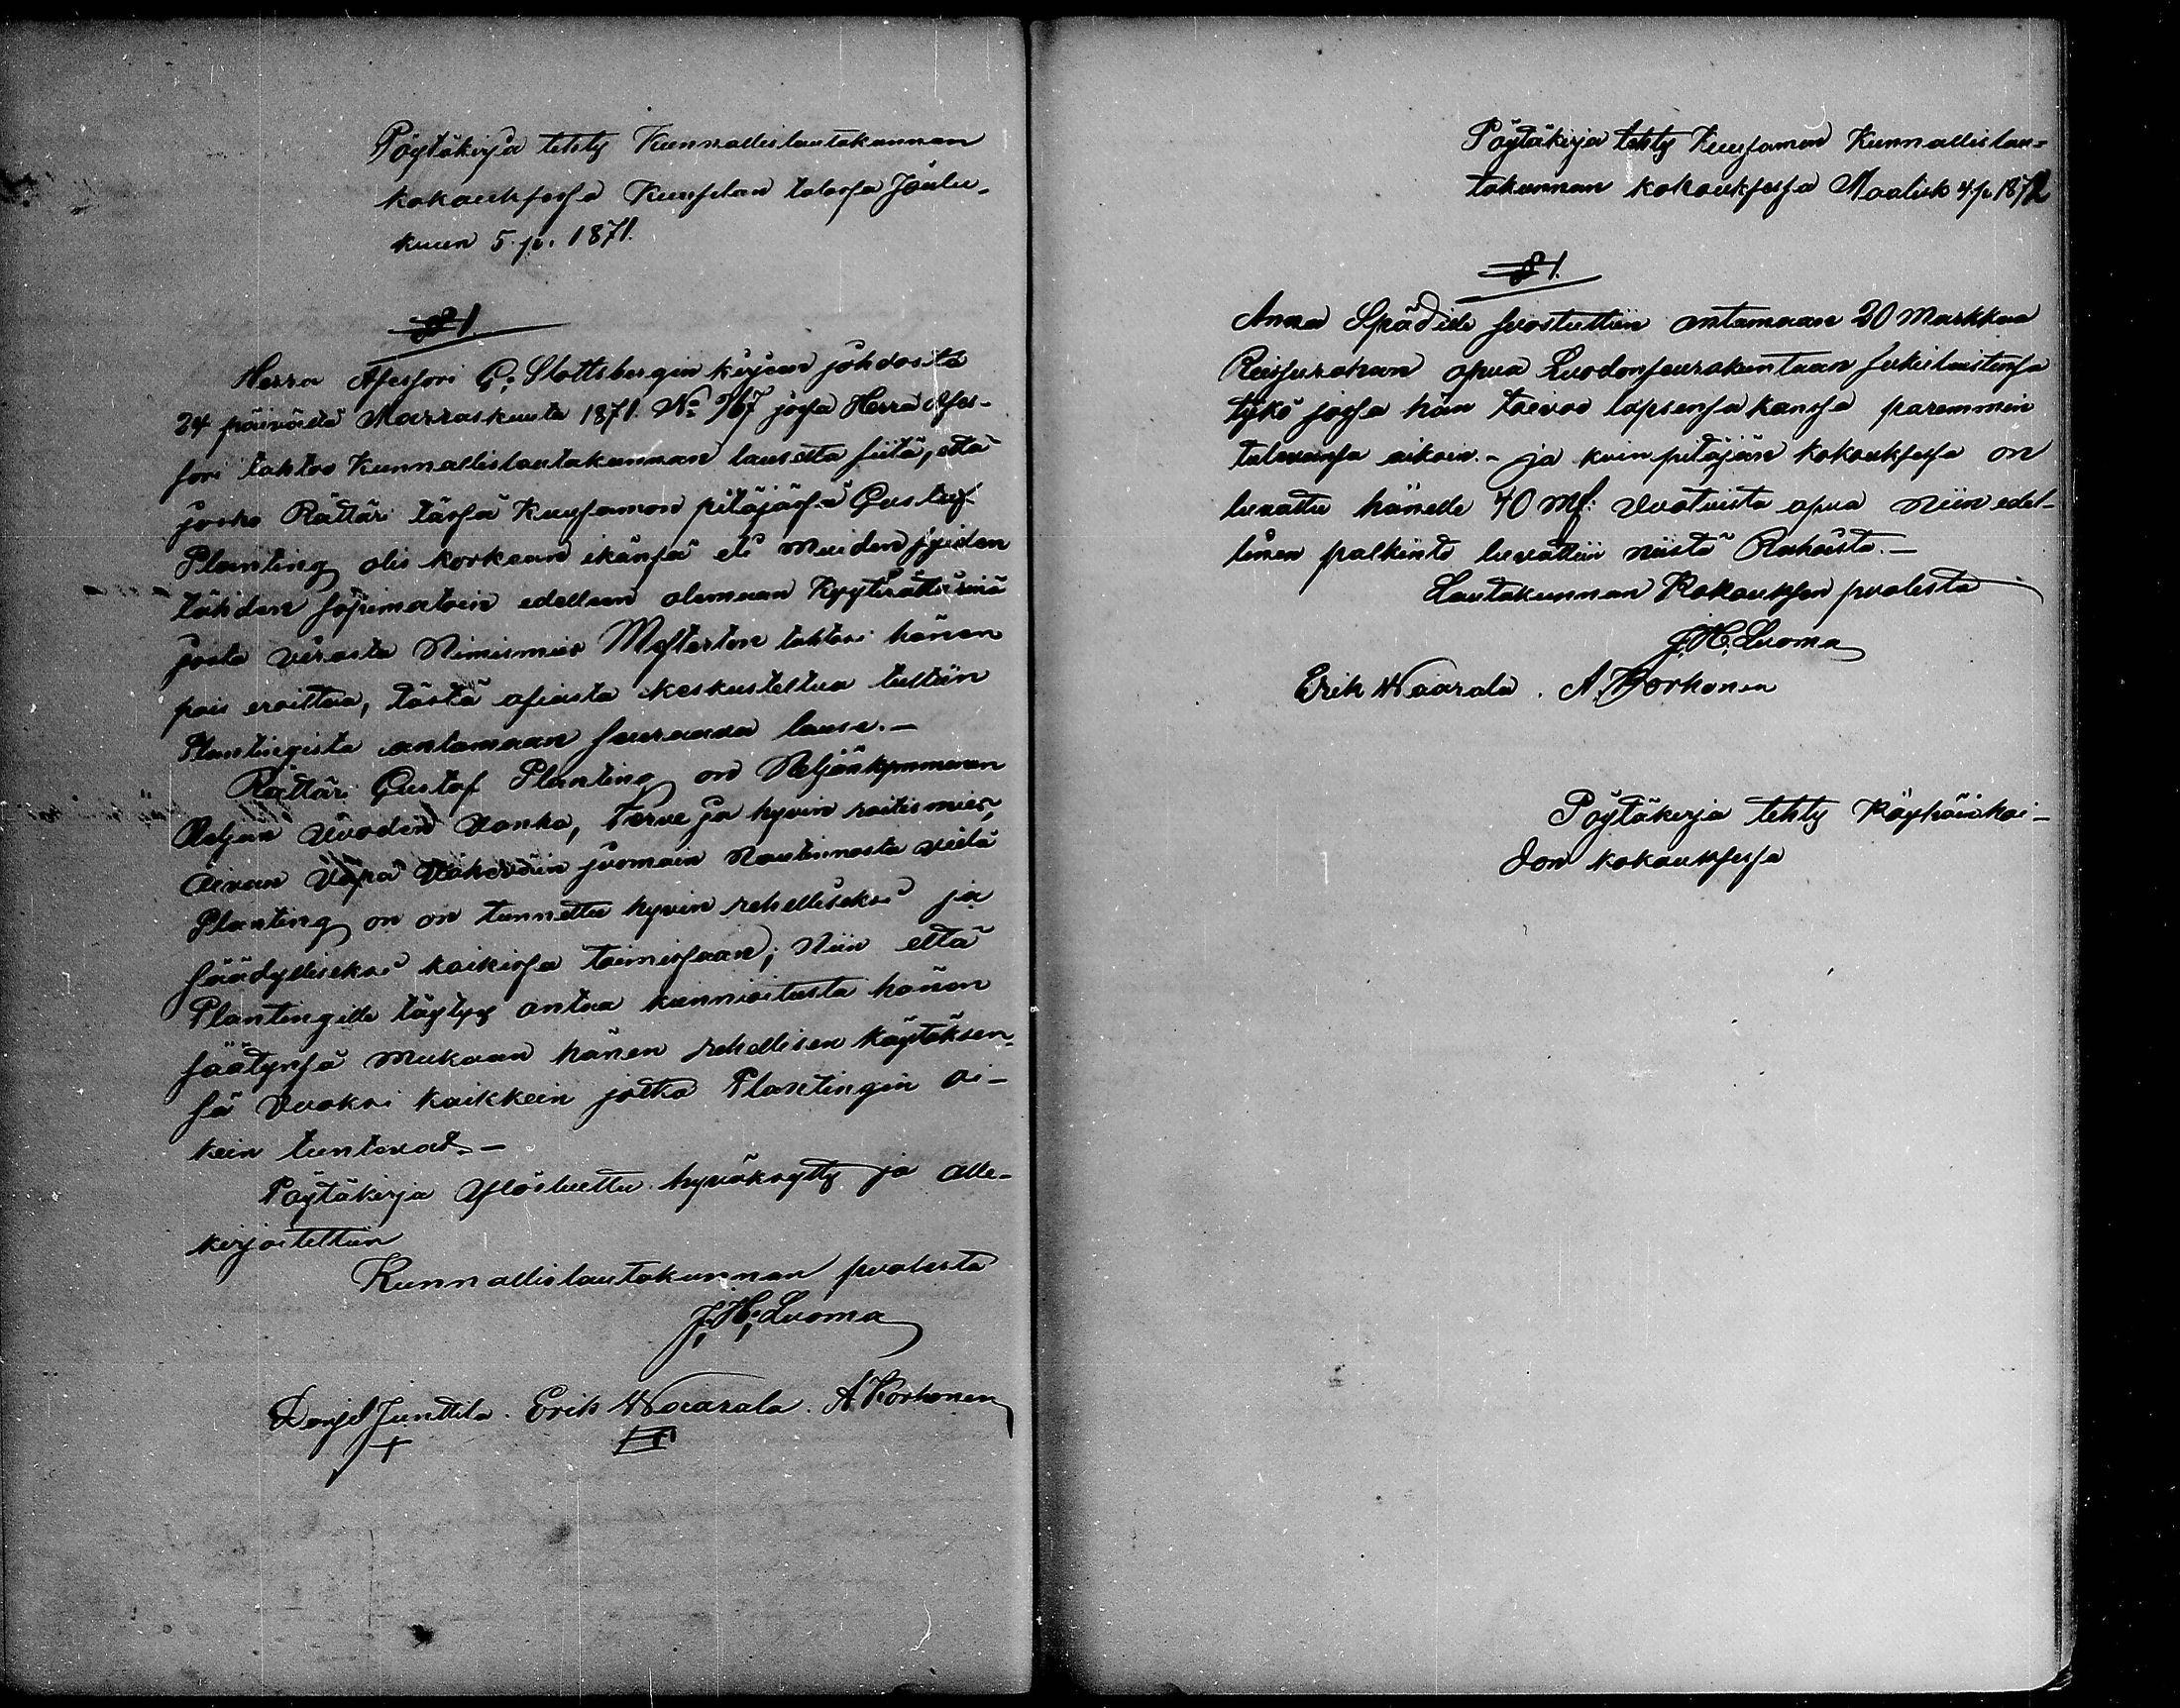 Pöytäkirja tehty Kunnallislautakunnan
kokouksessa Kuuselan talossa Joulu-
kuun 5. p. 1871.
§ 1.
Herra Assessori G: Slottsbergin kirjan johdosta
24 päivästä Marraskuuta 1871. No 967 jossa Herra Asses-
sori tahtoo Kunnallislautakunnan lausetta siitä, että
josko Rättäri tässä Kuusamon pitäjässä Gustaf
Planting olis korkean ikänsä eli muiden syiden
tähden sopimatoin edelleen olemaan Kyytirättärinä
josta virasta Nimismies Mesterton tahtoo hänen
pois eroittaa, tästä asiasta keskusteltua tultiin
Plantingista antamaan seuraava lause. —
Rättäri Gustaf Planting on Neljänkymmenen
Neljan vuoden vanha, Terve ja hyvin raitis mies,
aivan vapa väkeväin juomain nautinnosta vielä
Planting on on tunnettu hyvin rehelliseksi ja
säädylliseksi kaikissa toimissaan; Niin että
Plantingille täytyy antaa kunnioitusta hänen
säätynsä mukaan hänen rehellisen käytöksen-
sä vuoksi kaikkein jotka Plantingin oi-
kein tuntevat. —
Pöytäkirja Ylösluettu hyväksytty ja alle-
kirjoitettiin
Kunnallislautakunnan puolesta
J; H; Luoma
Danjel Junttila. Erik Waarala. A Korhonen
Pöytäkirja tehty Kuusamon Kunnallislau-
takunnan kokouksessa Maalisk 4. p. 1872
§ 1.
Anna Spädille suostuttiin antamaan 20 Markkaa
Reisurahan apua Luodonseurakuntaan sukulaistensa
tykö jossa hän toivoo lapsensa kanssa paremmin
tulevansa aikoin. – ja kuin pitäjän kokouksessa on
luvattu hänelle 40 Mk: Vuotuista apua Niin edel-
linen palkinto luvattiin niistä Rahoista. —
Lautakunnan Kokouksen puolesta
J. H. Luoma
Erik Waarala. A. Korhonen
Pöytäkirja tehty Köyhäinhoi-
don kokouksessa